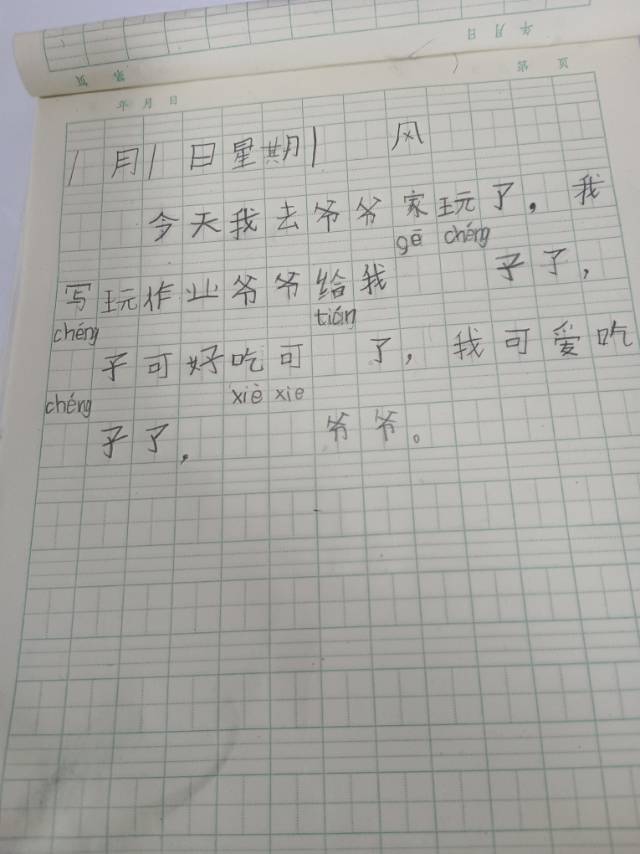 年 月 日
第 页
年 月 日
第 页
1月1日星期1 风
今天我去爷爷家玩了，我
gē chéng
写玩作业爷爷给我 子了，
chéng tián
子可好吃可 了，我可爱吃
chéng xiè xie
子了， 爷爷。